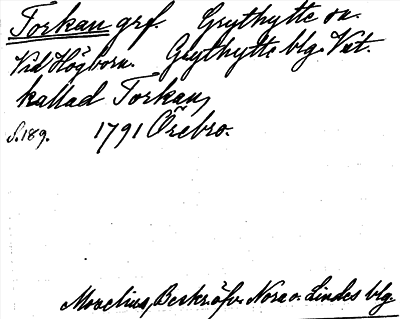 Torkan grf. Grythytte sn.
Vid Högborn. Grythytte blg. Vst.
kallad Torkan,
S. 189. 1791 Örebro.
Morelius, Beskr. öfv. Nora o. Lindes blg.